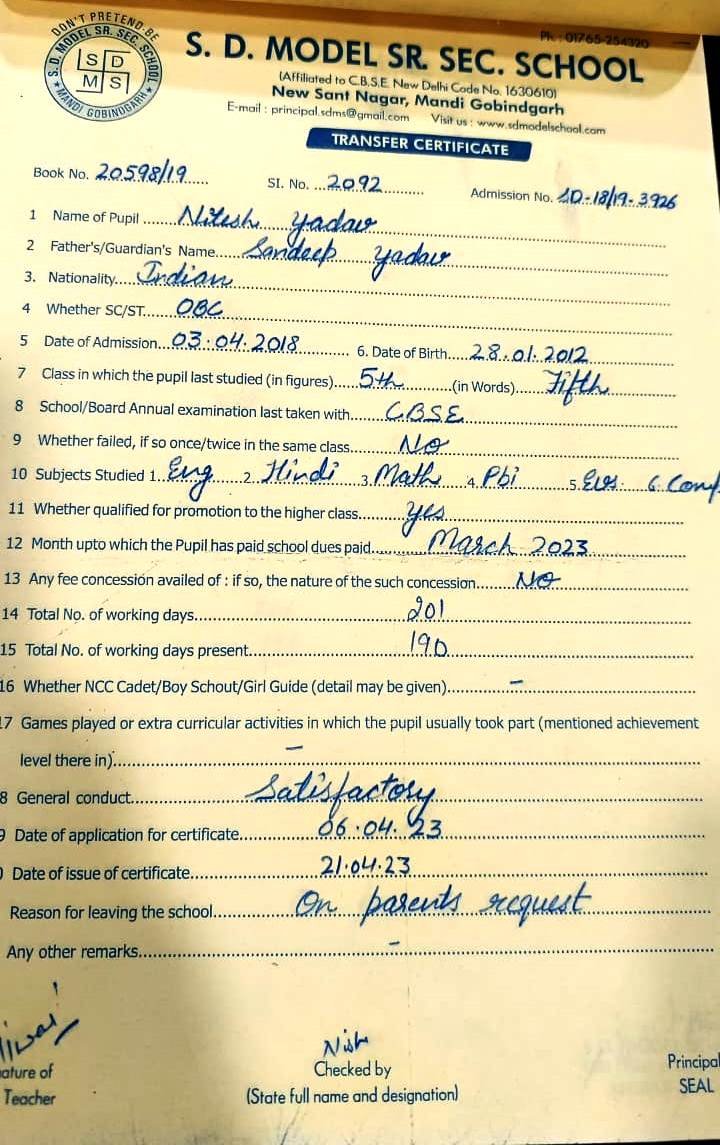 DON'T PRETEND. BE
S. D. MODEL SR. SEC. SCHOOL
S D
M S
★ MANDI GOBINDGARH ★
Ph.: 01765-254320
S. D. MODEL SR. SEC. SCHOOL
(Affiliated to C.B.S.E. New Delhi Code No. 1630610)
New Sant Nagar, Mandi Gobindgarh
E-mail : principal.sdms@gmail.com Visit us : www.sdmodelschool.com
TRANSFER CERTIFICATE
Book No. 20598/19 SI. No. 2092 Admission No. SD-18/19-3926
1 Name of Pupil Nitesh Yadav
2 Father's/Guardian's Name Sandeep Yadav
3. Nationality Indian
4 Whether SC/ST OBC
5 Date of Admission 03.04.2018 6. Date of Birth 28.01.2012
7 Class in which the pupil last studied (in figures) 5th (in Words) Fifth
8 School/Board Annual examination last taken with CBSE
9 Whether failed, if so once/twice in the same class NO
10 Subjects Studied 1. Eng 2. Hindi 3. Math 4. Pbi 5. Evs. 6. Comp
11 Whether qualified for promotion to the higher class yes
12 Month upto which the Pupil has paid school dues paid March 2023
13 Any fee concession availed of : if so, the nature of the such concession NO
14 Total No. of working days 201
15 Total No. of working days present 190
16 Whether NCC Cadet/Boy Schout/Girl Guide (detail may be given) –
17 Games played or extra curricular activities in which the pupil usually took part (mentioned achievement
level there in) –
8 General conduct Satisfactory
9 Date of application for certificate 06.04.23
0 Date of issue of certificate 21.04.23
Reason for leaving the school On parents request
Any other remarks –
Nish
ature of Checked by Principal
Teacher (State full name and designation) SEAL